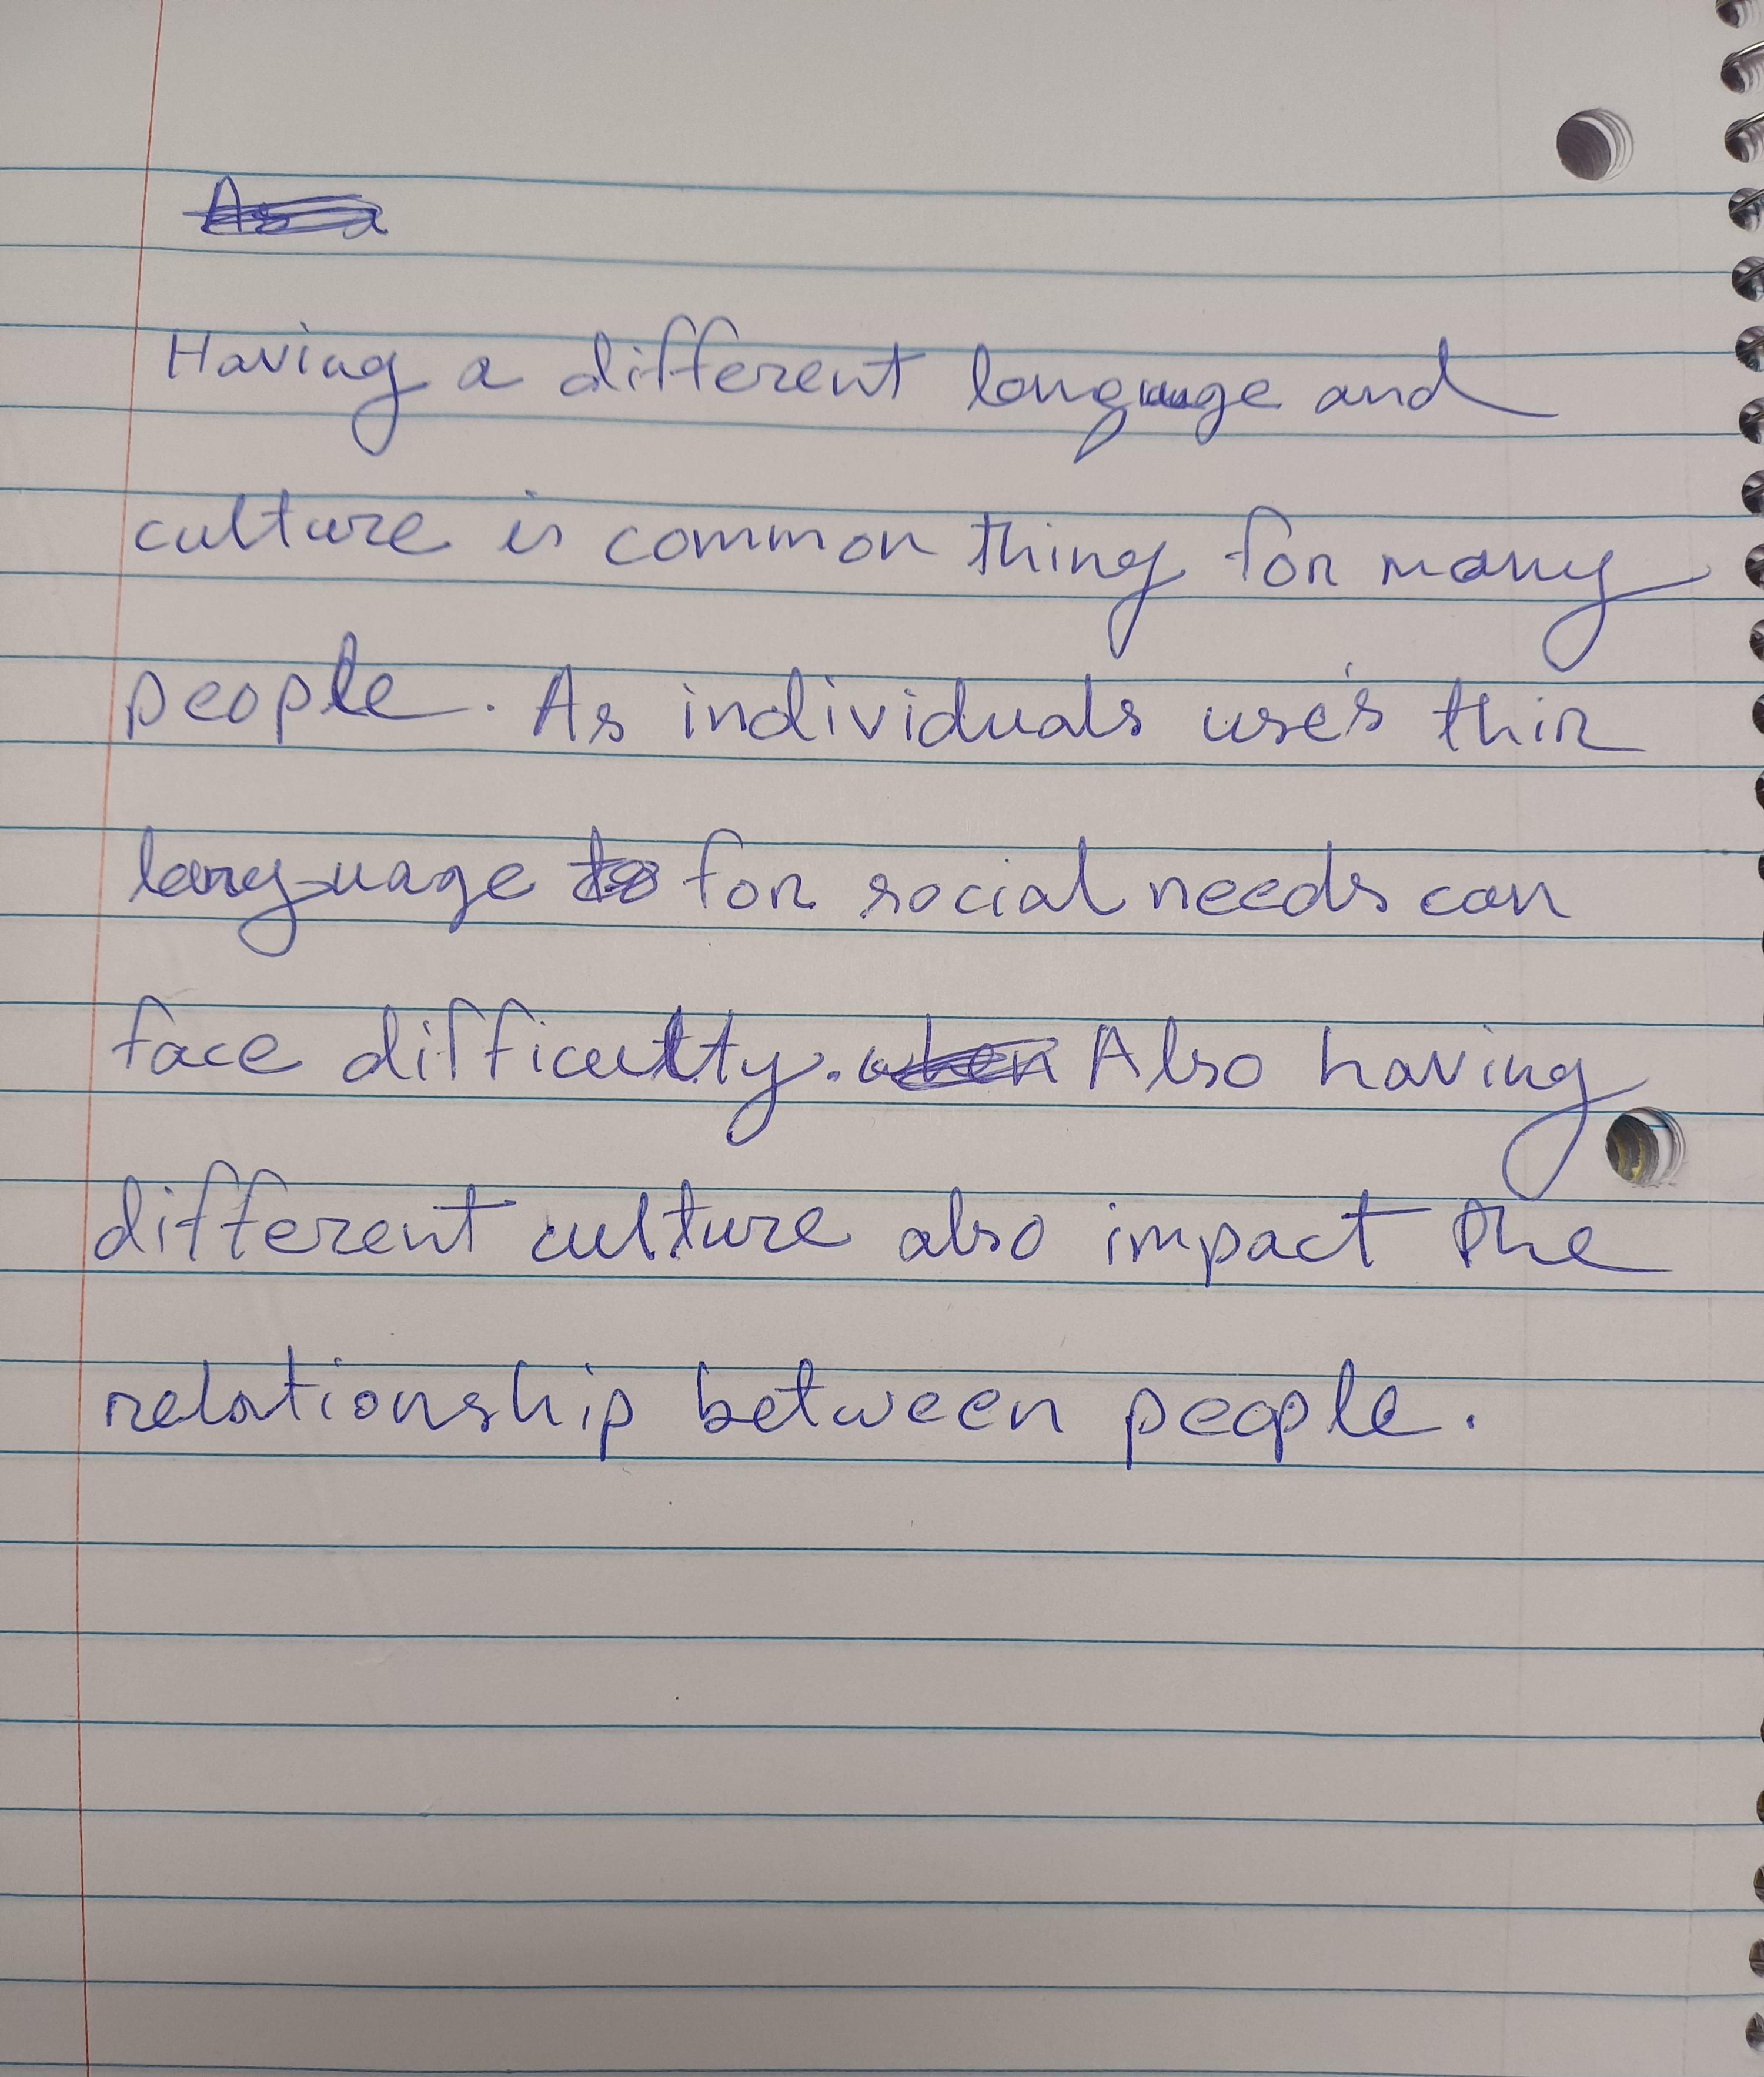 As a
Having a different language and
culture is common thing for many
people. As individuals use's thir
language to for social needs can
face difficulty. when Also having
different culture also impact the
relationship between people.